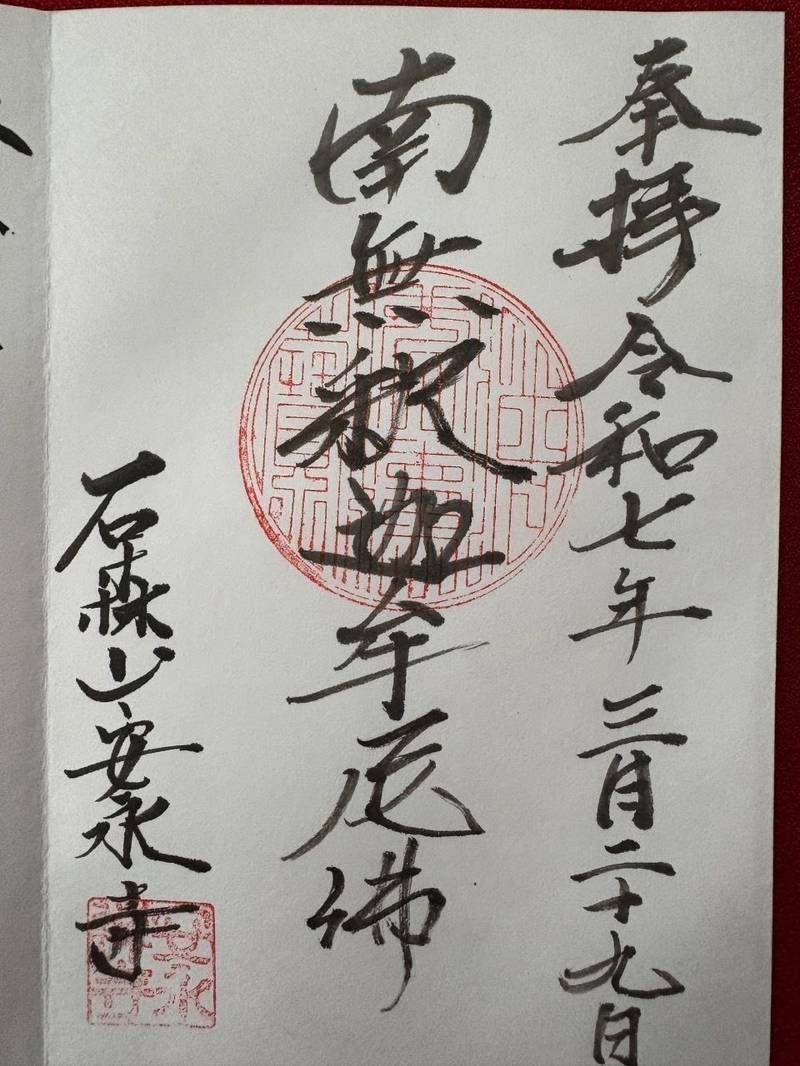 奉拝 令和七年 三月二十九日
南無釈迦牟尼佛
石森山安永寺